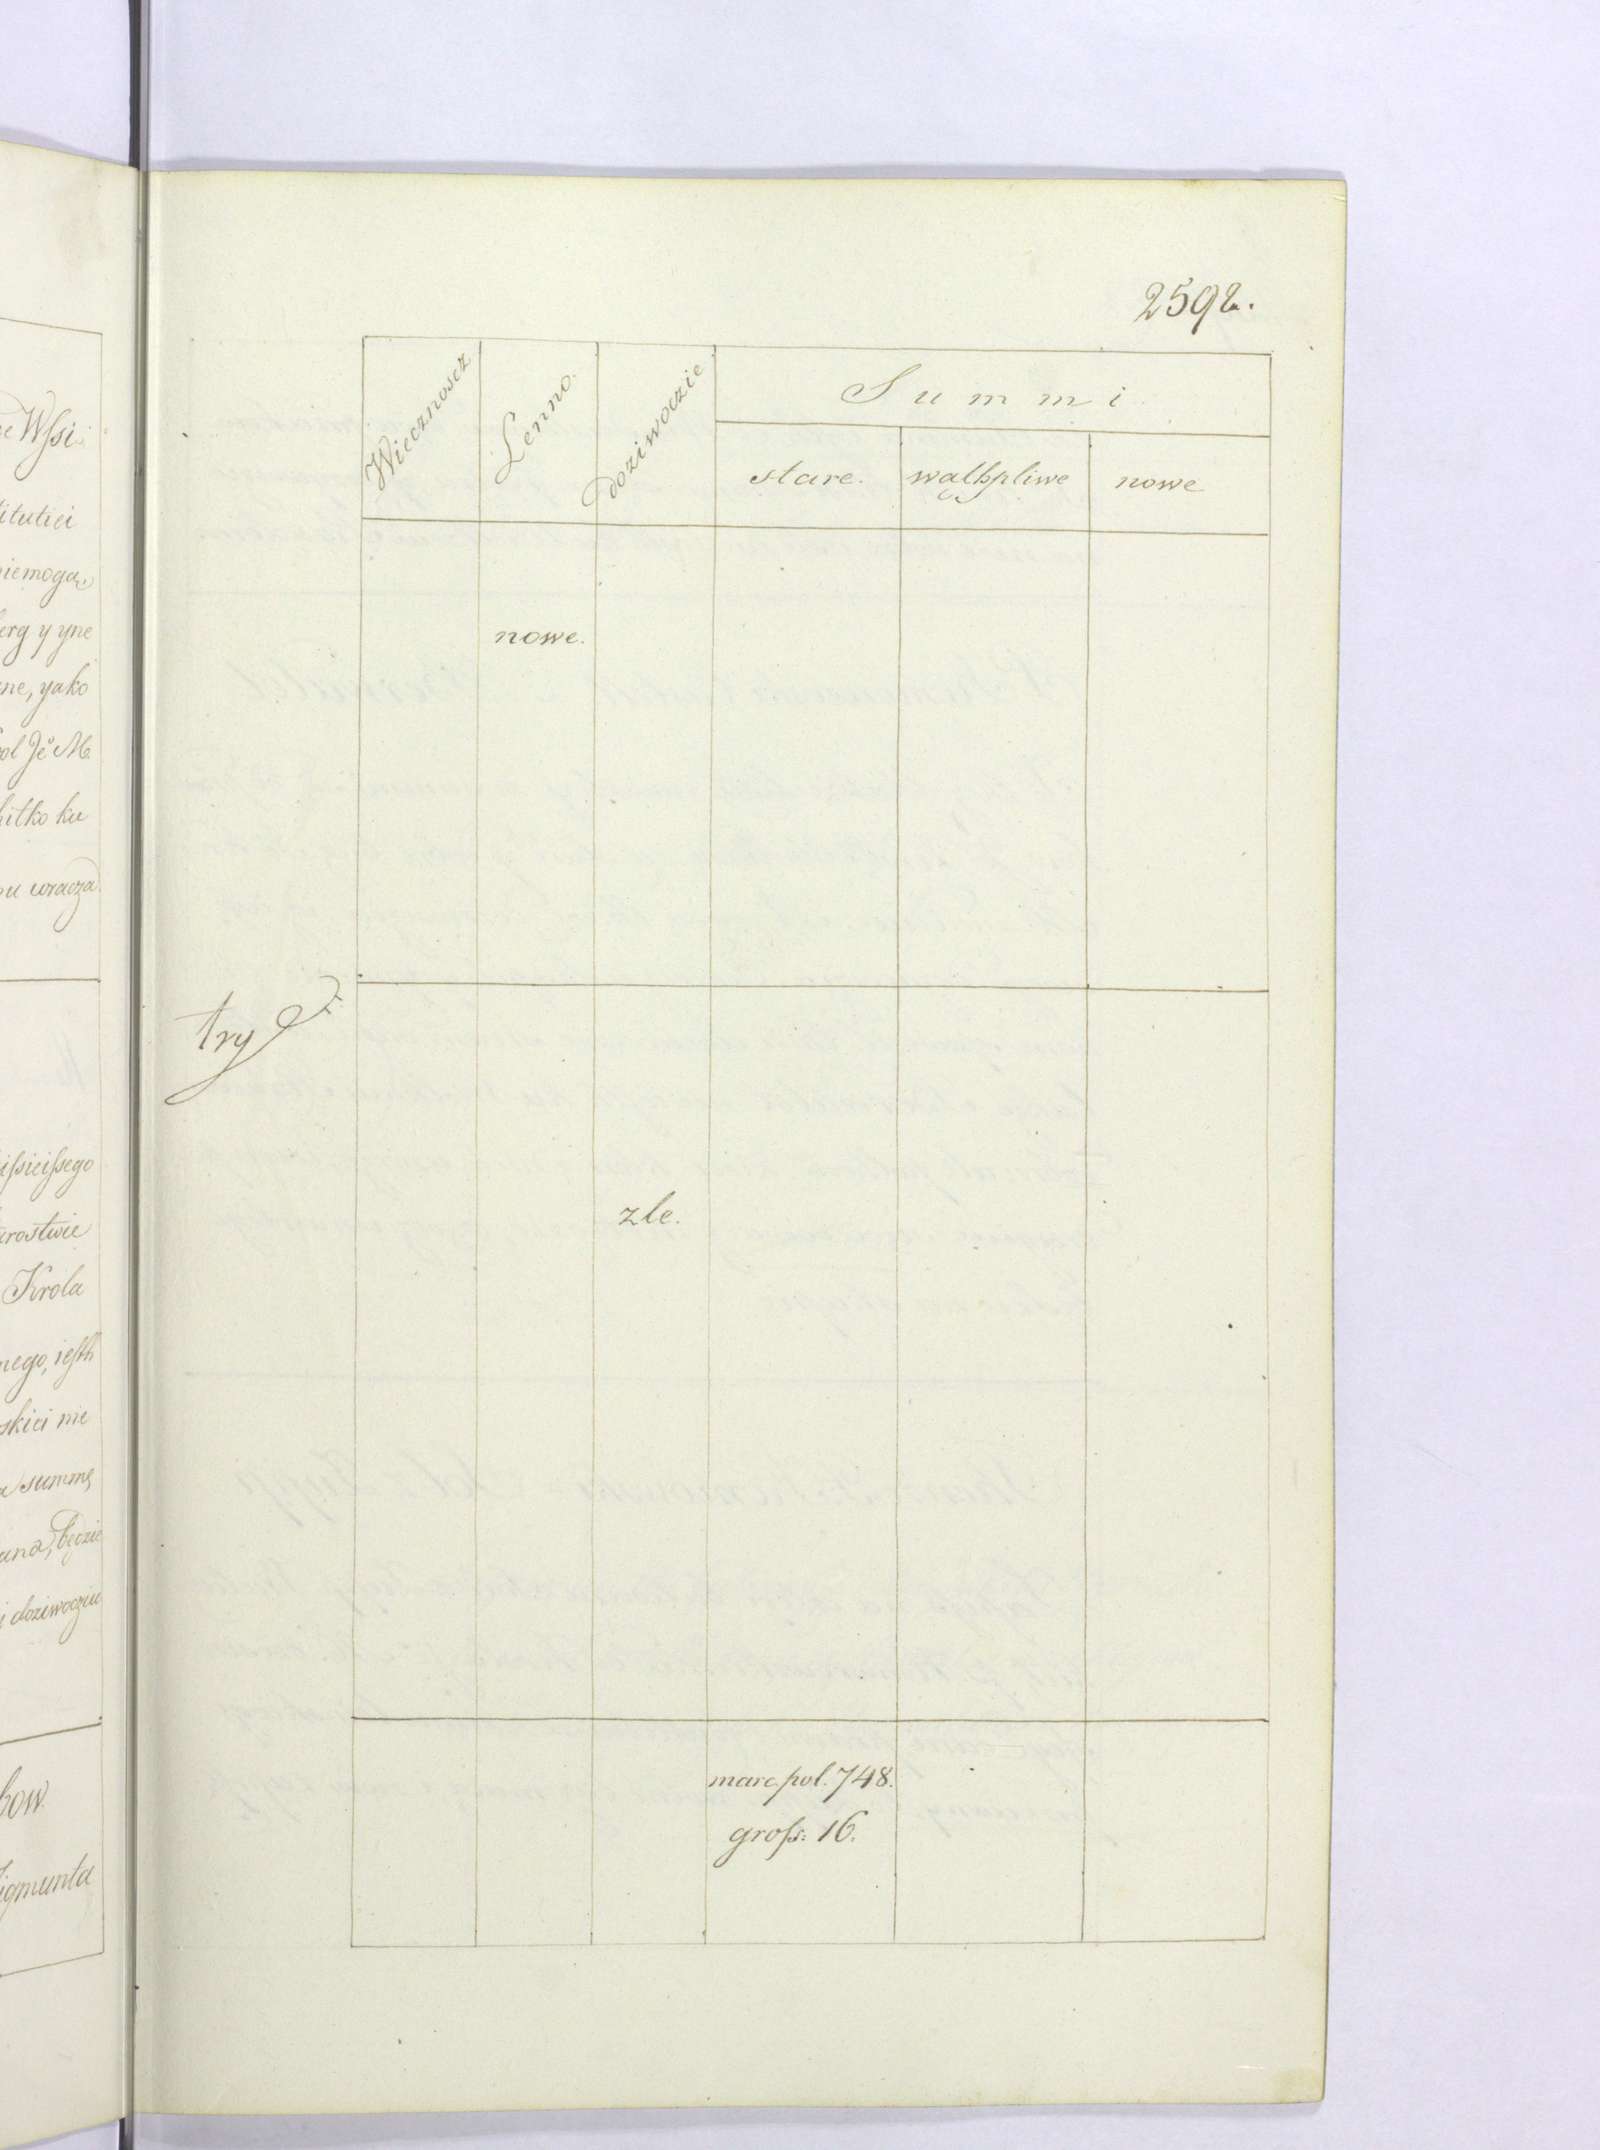 2592.
Wiecznoscz
Lenno.
doziwoczie
Summi
stare.
wąthpliwe
nowe
nowe.
try
zle.
marc. pol. 748.
groſs: 16.
Wſsi.
titutiei
niemogą
erg y yne
ne, yako
ol Je° M.
hitko ku
u wracza
iſsieiſsego
arostwie
Krola
nego, ieſth
skiei nie
summę
ana, będzie
i doziwocziu
bow.
igmunta